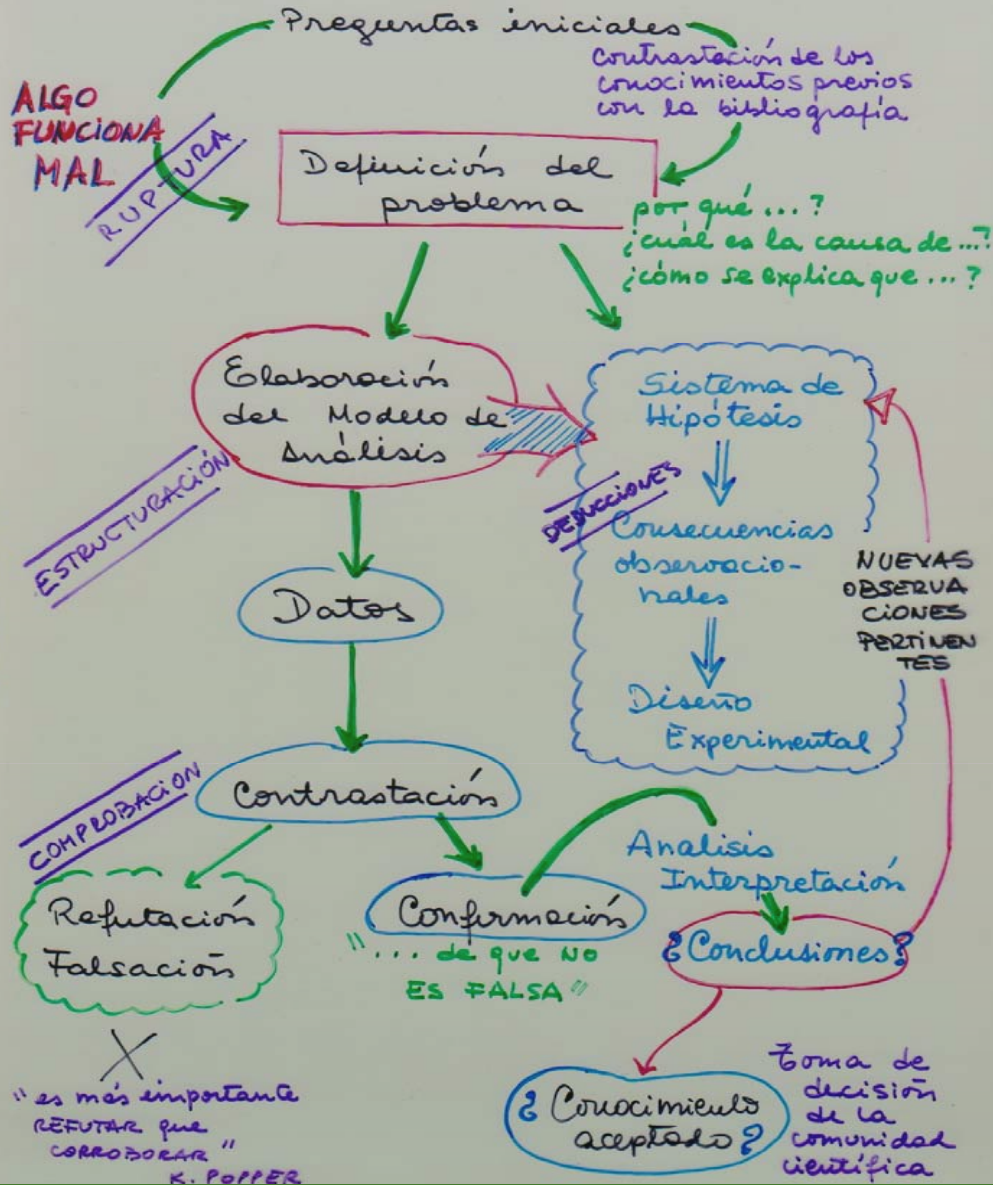 Preguntas iniciales
contrastación de los
conocimientos previos
con la bibliografía
ALGO
FUNCIONA
MAL
RUPTURA
Definición del
problema
por qué ...?
¿cuál es la causa de ...?
¿cómo se explica que ...?
Elaboración
del Modelo de
Análisis
ESTRUCTURACIÓN
Sistema de
Hipótesis
DEDUCCIONES
Consecuencias
observacio-
nales
Diseño
Experimental
NUEVAS
OBSERVA
CIONES
PERTINEN
TES
Datos
COMPROBACIÓN
Contrastación
Refutación
Falsación
Confirmación
"... de que NO
ES FALSA"
Analisis
Interpretación
¿Conclusiones?
"es más importante
REFUTAR que
CORROBORAR"
K. POPPER
¿Conocimiento
aceptado?
Toma de
decisión
de la
comunidad
científica